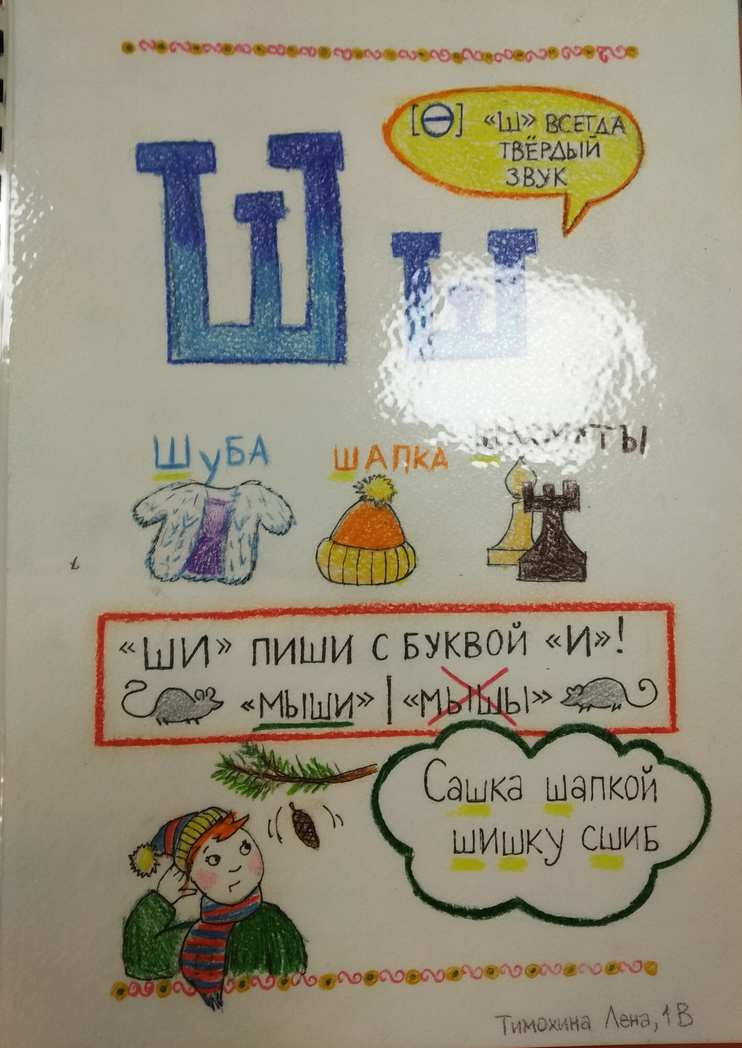 Ш ш
[Ө] «Ш» ВСЕГДА
ТВЁРДЫЙ
ЗВУК
ШУБА
ШАПКА
ШАХМАТЫ
«ШИ» ПИШИ С БУКВОЙ «И»!
«МЫШИ» | «МЫШЫ»
Сашка шапкой
шишку сшиб
Тимохина Лена, 1 В